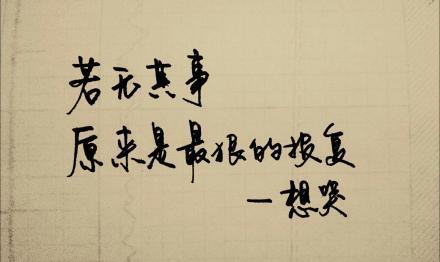 若无其事
原来是最狠的报复
一想哭